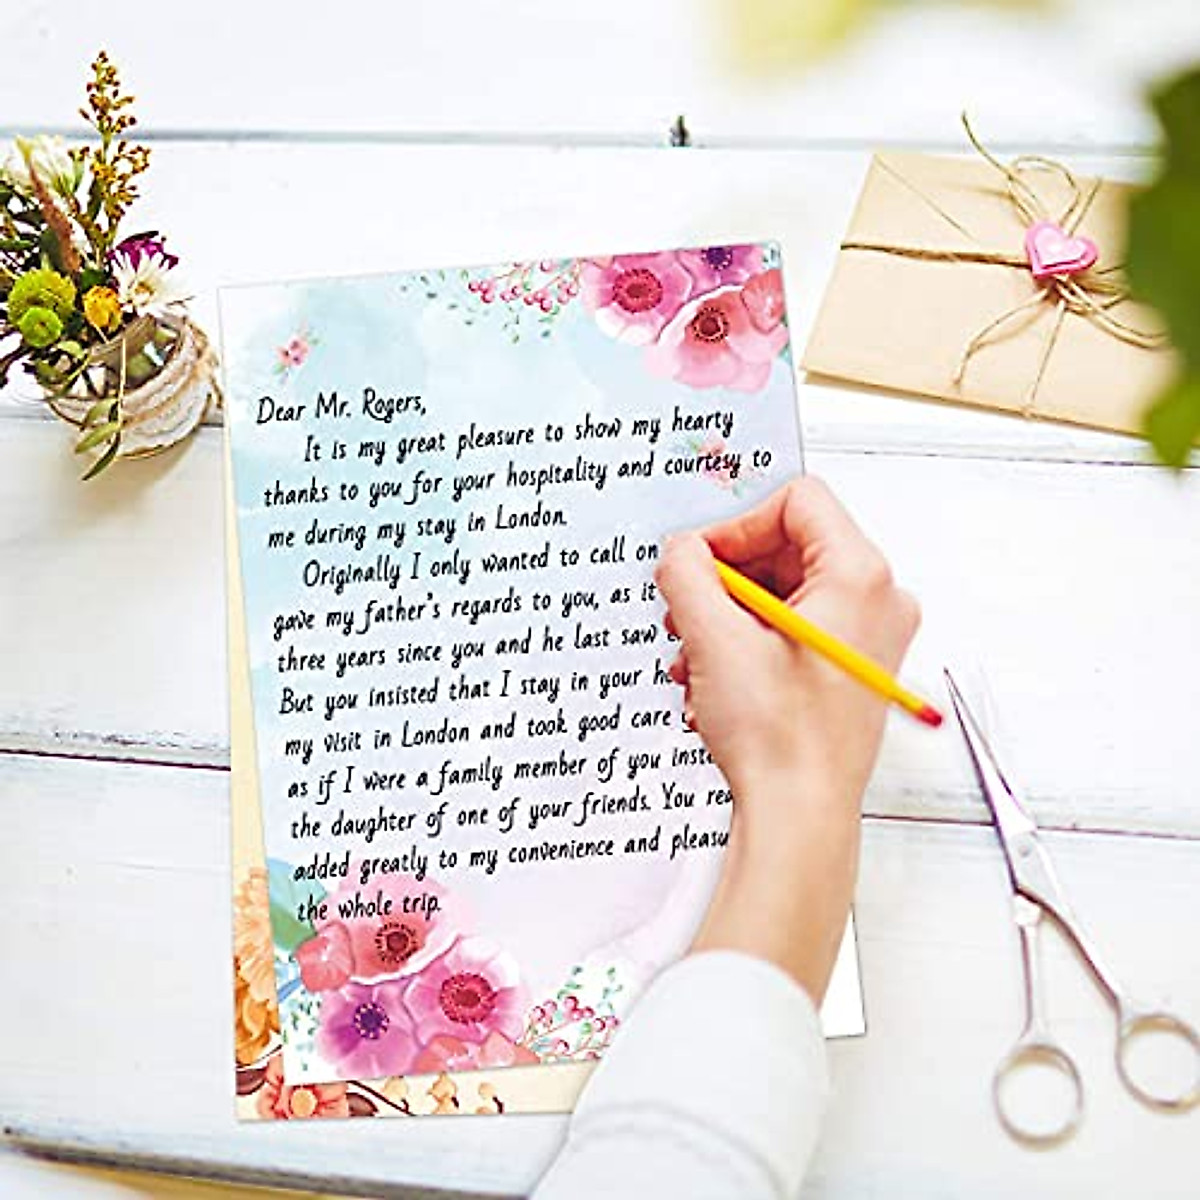 Dear Mr. Rogers,
It is my great pleasure to show my hearty
thanks to you for your hospitality and courtesy to
me during my stay in London.
Originally I only wanted to call on
gave my father's regards to you, as it
three years since you and he last saw
But you insisted that I stay in your
my visit in London and took good care
as if I were a family member of you
the daughter of one of your friends. You
added greatly to my convenience and
the whole trip.